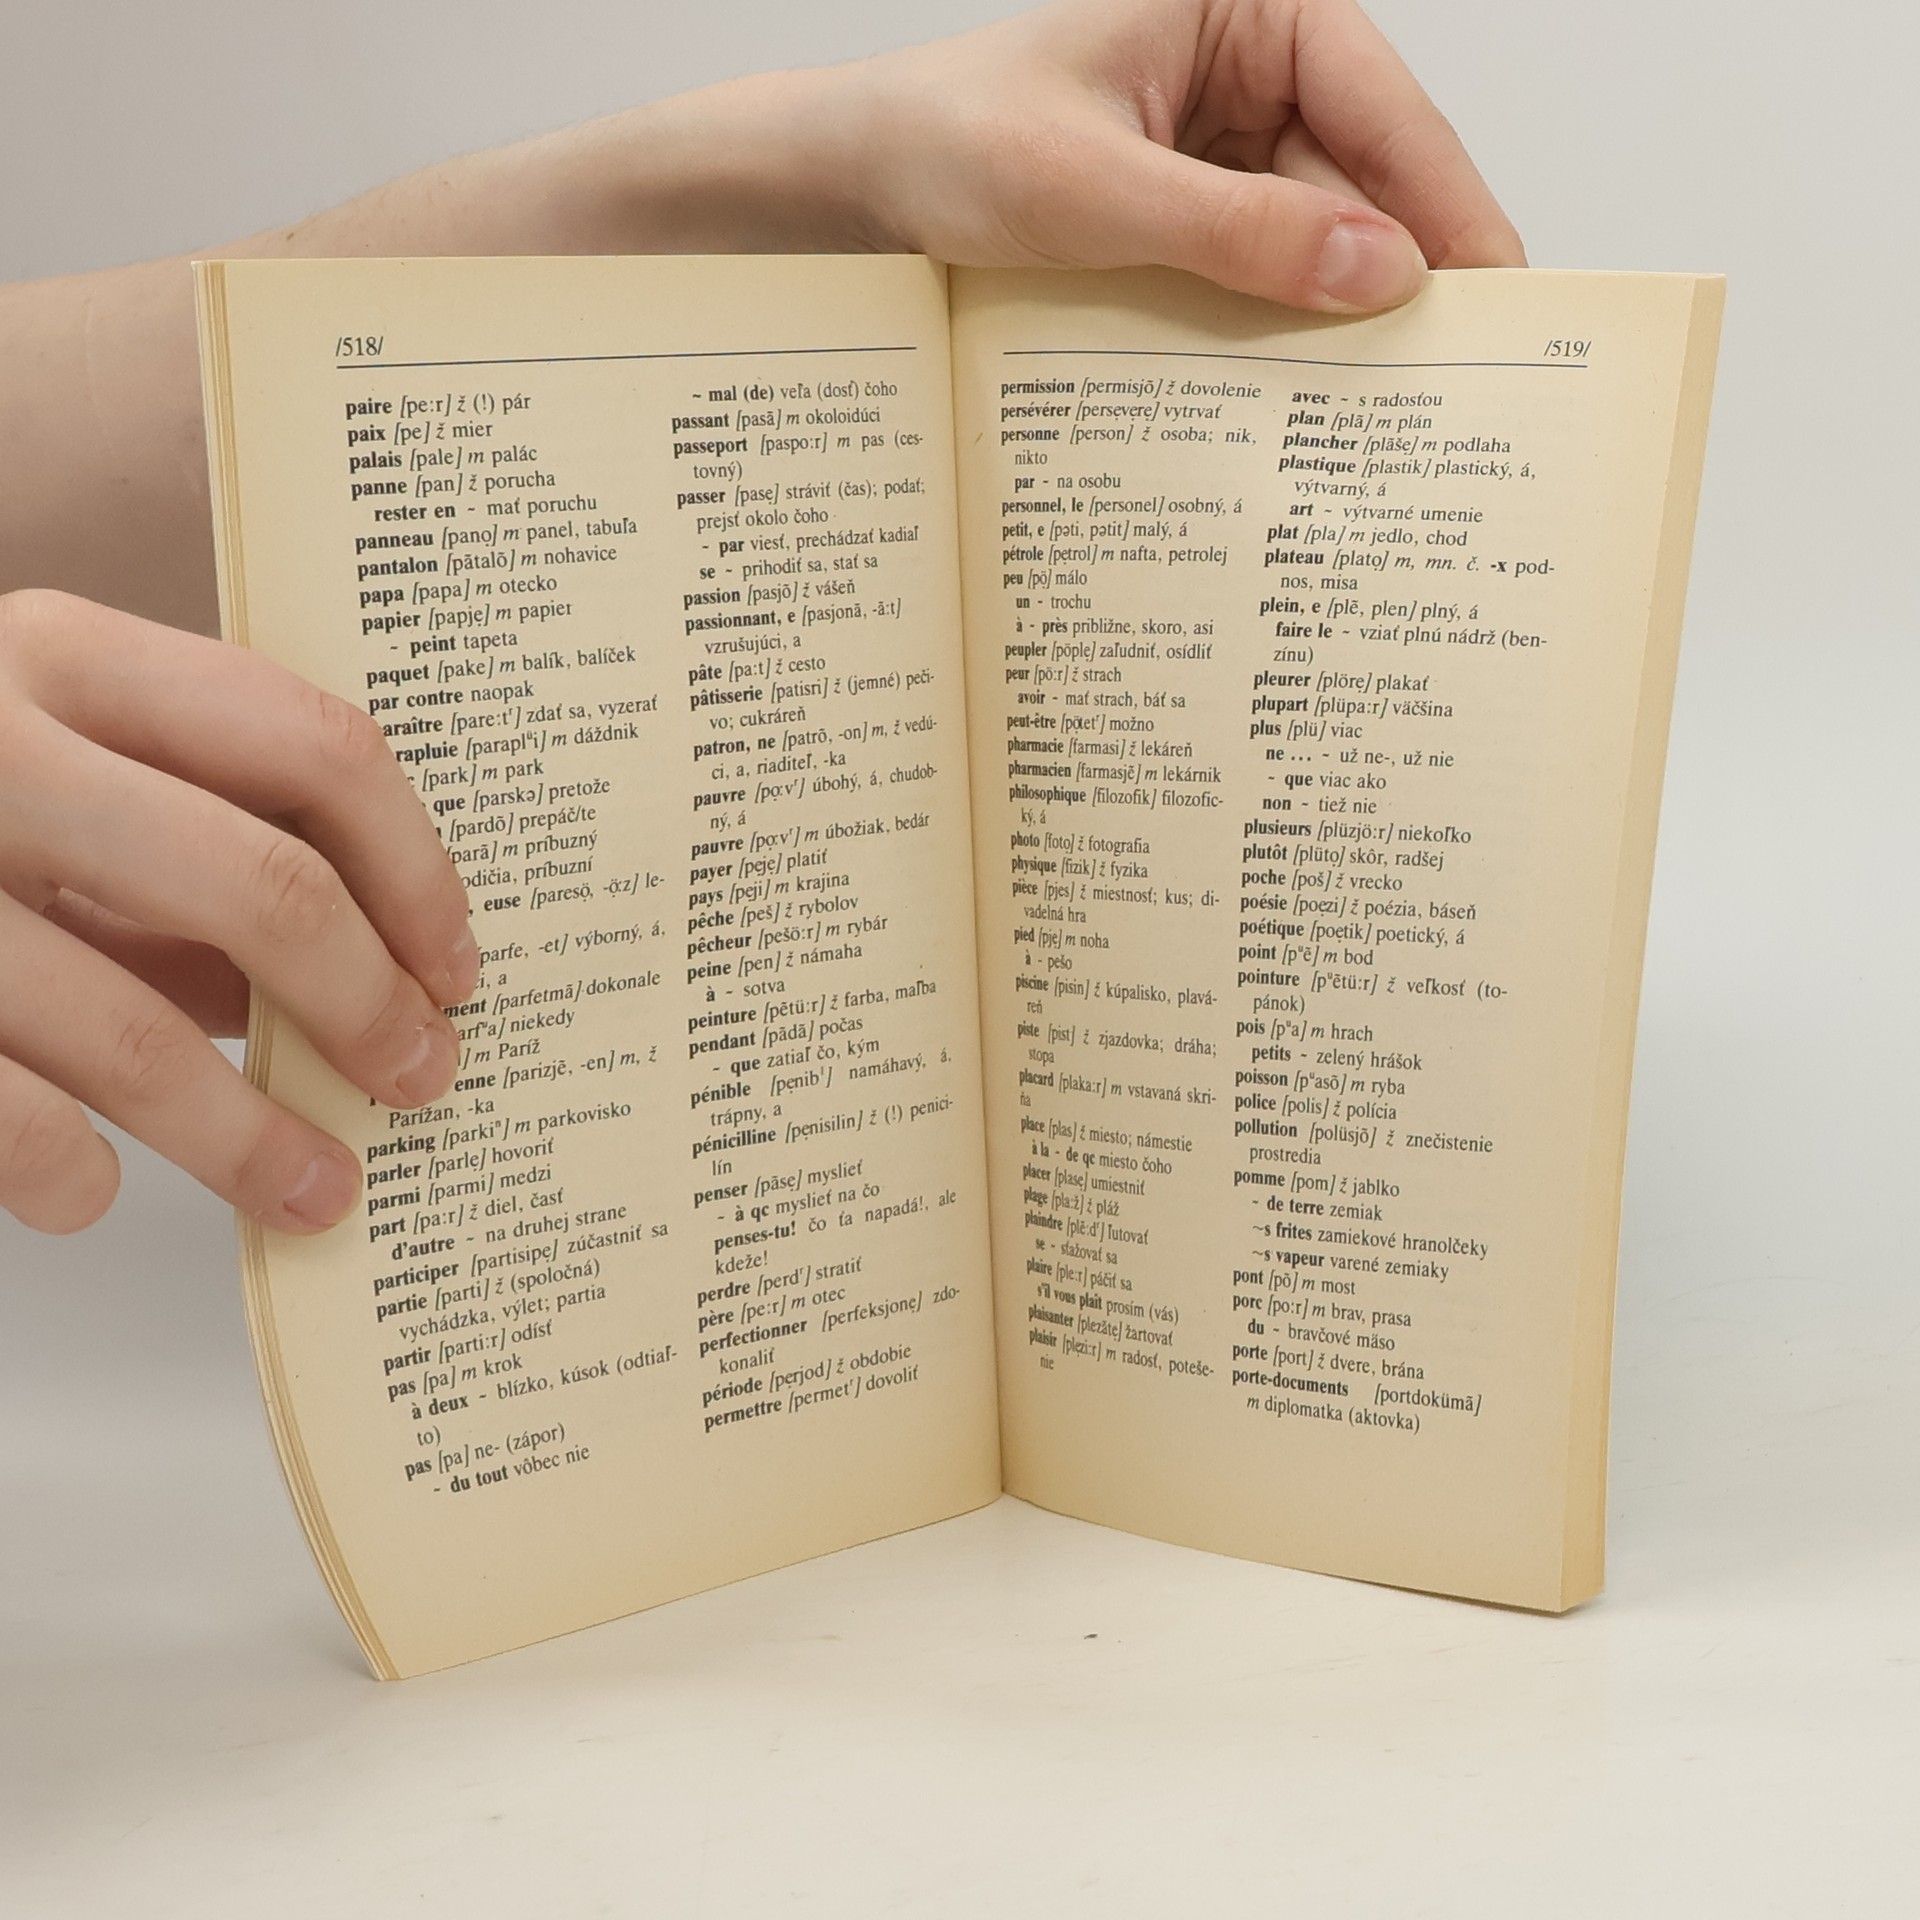 /518/
paire [pe:r] ž (!) pár
paix [pe] ž mier
palais [pale] m palác
panne [pan] ž porucha
rester en ~ mať poruchu
panneau [panọ] m panel, tabuľa
pantalon [pãtalõ] m nohavice
papa [papa] m otecko
papier [papję] m papier
~ peint tapeta
paquet [pake] m balík, balíček
par contre naopak
araître [pare:tʳ] zdať sa, vyzerať
rapluie [paraplᵘ̈i] m dáždnik
[park] m park
que [parskə] pretože
[pardõ] prepáč/te
[parã] m príbuzný
odičia, príbuzní
, euse [paresọ̈, -ọ̈:z] le-
[parfe, -et] výborný, á,
ci, a
ment [parfetmã] dokonale
arfᵘa] niekedy
] m Paríž
enne [parizjẽ, -en] m, ž
Parížan, -ka
parking [parkiⁿ] m parkovisko
parler [parlẹ] hovoriť
parmi [parmi] medzi
part [pa:r] ž diel, časť
d'autre ~ na druhej strane
participer [partisipẹ] zúčastniť sa
partie [parti] ž (spoločná)
vychádzka, výlet; partia
partir [parti:r] odísť
pas [pa] m krok
à deux ~ blízko, kúsok (odtiaľ-
to)
pas [pa] ne- (zápor)
~ du tout vôbec nie
~ mal (de) veľa (dosť) čoho
passant [pasã] m okoloidúci
passeport [paspo:r] m pas (ces-
tovný)
passer [pasẹ] stráviť (čas); podať;
prejsť okolo čoho
~ par viesť, prechádzať kadiaľ
se ~ prihodiť sa, stať sa
passion [pasjõ] ž vášeň
passionnant, e [pasjonã, -ã:t]
vzrušujúci, a
pâte [pa:t] ž cesto
pâtisserie [patisri] ž (jemné) peči-
vo; cukráreň
patron, ne [patrõ, -on] m, ž vedú-
ci, a, riaditeľ, -ka
pauvre [pọ:vʳ] úbohý, á, chudob-
ný, á
pauvre [pọ:vʳ] m úbožiak, bedár
payer [pẹjẹ] platiť
pays [pẹji] m krajina
pêche [peš] ž rybolov
pêcheur [pešö:r] m rybár
peine [pen] ž námaha
à ~ sotva
peinture [pẽtü:r] ž farba, maľba
pendant [pãdã] počas
~ que zatiaľ čo, kým
pénible [pẹnibˡ] namáhavý, á,
trápny, a
pénicilline [pẹnisilin] ž (!) penici-
lín
penser [pãsẹ] myslieť
~ à qc myslieť na čo
penses-tu! čo ťa napadá!, ale
kdeže!
perdre [perdʳ] stratiť
père [pe:r] m otec
perfectionner [perfeksjonẹ] zdo-
konaliť
période [pẹrjod] ž obdobie
permettre [permetʳ] dovoliť
/519/
permission [permisjõ] ž dovolenie
persévérer [persẹvẹrẹ] vytrvať
personne [person] ž osoba; nik,
nikto
par ~ na osobu
personnel, le [personel] osobný, á
petit, e [pəti, pətit] malý, á
pétrole [pẹtrol] m nafta, petrolej
peu [pọ̈] málo
un ~ trochu
à ~ près približne, skoro, asi
peupler [pöplẹ] zaľudniť, osídliť
peur [pö:r] ž strach
avoir ~ mať strach, báť sa
peut-être [pọ̈tetʳ] možno
pharmacie [farmasi] ž lekáreň
pharmacien [farmasjẽ] m lekárnik
philosophique [filozofik] filozofic-
ký, á
photo [fotọ] ž fotografia
physique [fizik] ž fyzika
pièce [pjes] ž miestnosť; kus; di-
vadelná hra
pied [pjẹ] m noha
à ~ pešo
piscine [pisin] ž kúpalisko, plavá-
reň
piste [pist] ž zjazdovka; dráha;
stopa
placard [plaka:r] m vstavaná skri-
ňa
place [plas] ž miesto; námestie
à la ~ de qc miesto čoho
placer [plasẹ] umiestniť
plage [pla:ž] ž pláž
plaindre [plẽ:dʳ] ľutovať
se ~ sťažovať sa
plaire [ple:r] páčiť sa
s'il vous plaît prosím (vás)
plaisanter [plezãtẹ] žartovať
plaisir [plẹzi:r] m radosť, poteše-
nie
avec ~ s radosťou
plan [plã] m plán
plancher [plãšẹ] m podlaha
plastique [plastik] plastický, á,
výtvarný, á
art ~ výtvarné umenie
plat [pla] m jedlo, chod
plateau [platọ] m, mn. č. -x pod-
nos, misa
plein, e [plẽ, plen] plný, á
faire le ~ vziať plnú nádrž (ben-
zínu)
pleurer [plörẹ] plakať
plupart [plüpa:r] väčšina
plus [plü] viac
ne ... ~ už ne-, už nie
~ que viac ako
non ~ tiež nie
plusieurs [plüzjö:r] niekoľko
plutôt [plütọ] skôr, radšej
poche [poš] ž vrecko
poésie [poẹzi] ž poézia, báseň
poétique [poẹtik] poetický, á
point [pᵘẽ] m bod
pointure [pᵘẽtü:r] ž veľkosť (to-
pánok)
pois [pᵘa] m hrach
petits ~ zelený hrášok
poisson [pᵘasõ] m ryba
police [polis] ž polícia
pollution [polüsjõ] ž znečistenie
prostredia
pomme [pom] ž jablko
~ de terre zemiak
~s frites zamiekové hranolčeky
~s vapeur varené zemiaky
pont [põ] m most
porc [po:r] m brav, prasa
du ~ bravčové mäso
porte [port] ž dvere, brána
porte-documents [portdokümã]
m diplomatka (aktovka)